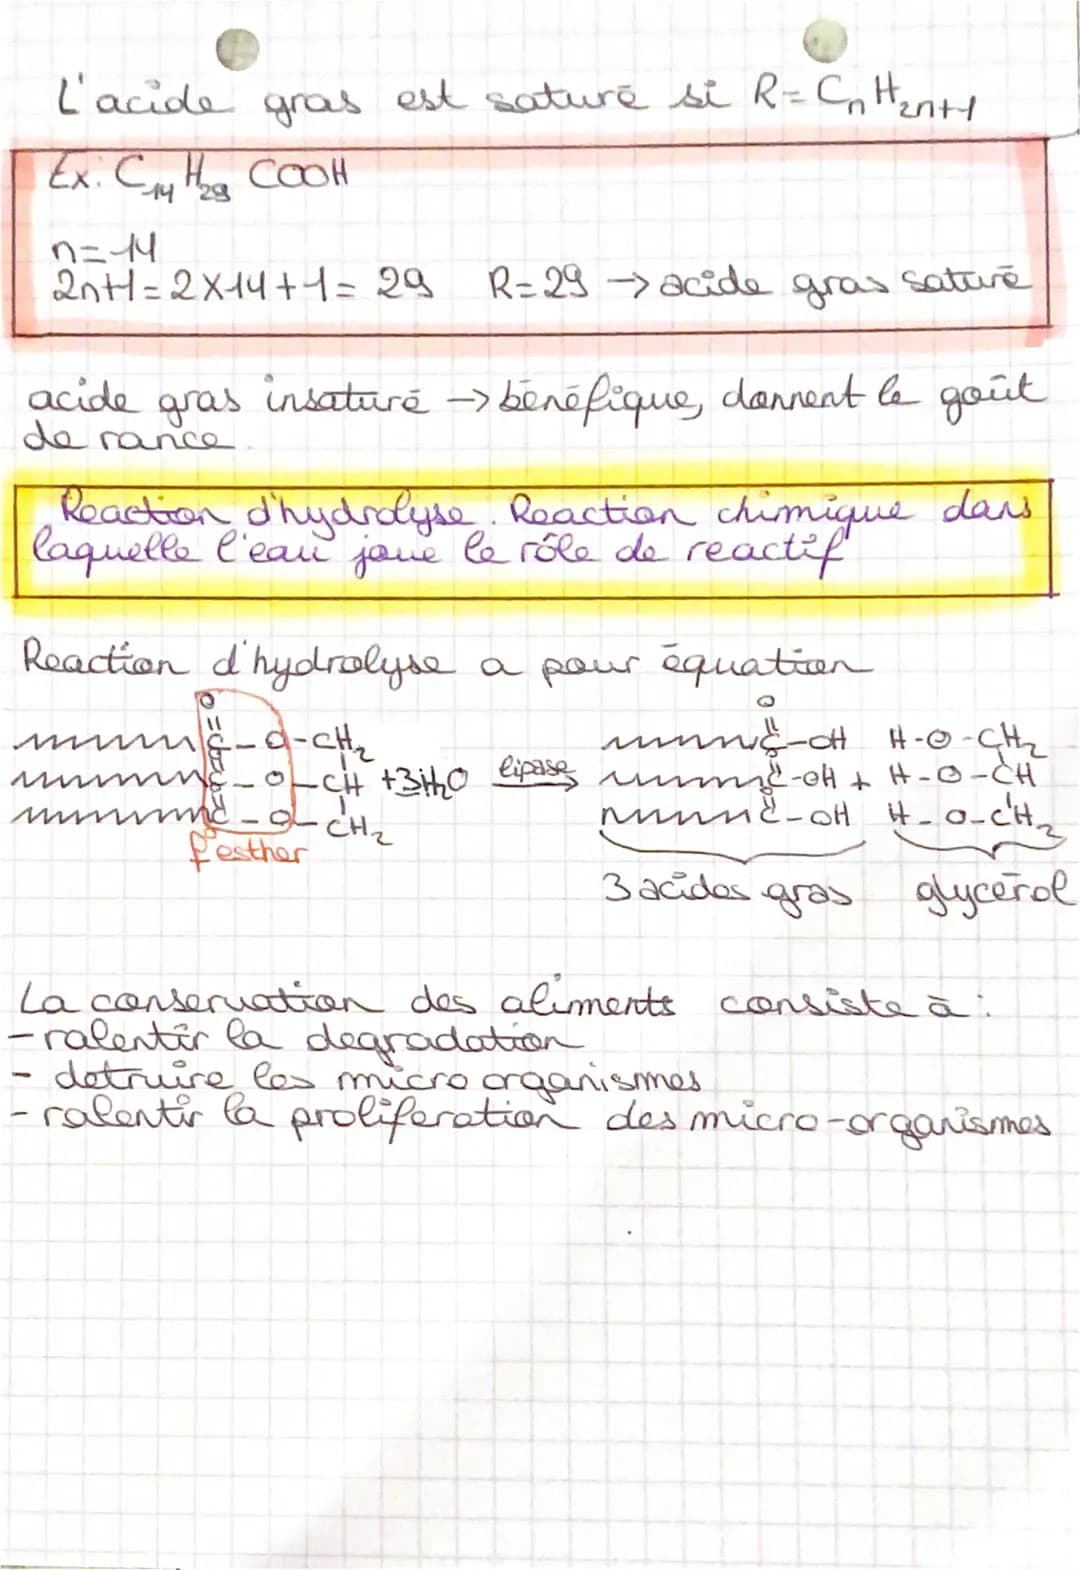 L'acide gras est saturé si R = CnH2n+1
Ex: C14 H29 COOH
n = 14
2n+1 = 2x14+1 = 29 R=29 → acide gras saturé
acide gras insaturé → bénéfique, donnent le goût
de rance.
Reaction d'hydrolyse. Reaction chimique dans
laquelle l'eau joue le rôle de reactif
Reaction d'hydrolyse a pour équation
O O
C-O-CH2 C-OH H-O-CH2
C-O-CH +3H2O lipase → C-OH + H-O-CH
C-O-CH2 C-OH H-O-CH2
f°esther
3 acides gras glycérol
La conservation des aliments consiste à :
- ralentir la degradation
- detruire les micro organismes
- ralentir la proliferation des micro-organismes